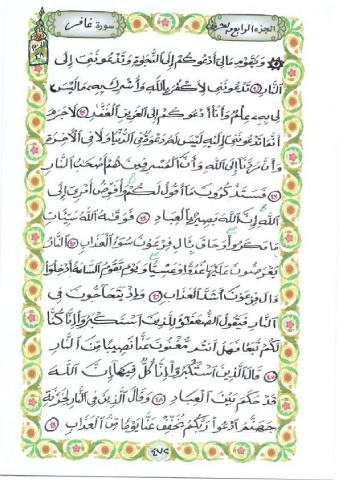 الجزء الرابع والعشرون
سورة غافر
ويقوم مالى أدعوكم إلى النجوة وتدعوننى إلى
النار ٤١ تدعوننى لأكفر بالله وأشرك به ما ليس
لى به علم وأنا أدعوكم إلى العزيز الغفر ٤٢ لا جرم
أنما تدعوننى إليه ليس له دعوة فى الدنيا ولا فى الأخرة
وأن مردنا إلى الله وأن المسرفين هم أصحب النار
٤٣ فستذكرون ما أقول لكم وأفوض أمرى إلى
الله إن الله بصير بالعباد ٤٤ فوقه الله سيئات
ما مكروا وحاق بال فرعون سوء العذاب ٤٥ النار
يعرضون عليها غدوا وعشيا ويوم تقوم الساعة أدخلوا
ءال فرعون أشد العذاب ٤٦ وإذ يتحاجون فى
النار فيقول الضعفؤا للذين استكبروا إنا كنا
لكم تبعا فهل أنتم مغنون عنا نصيبا من النار
٤٧ قال الذين استكبروا إنا كل فيها إن الله
قد حكم بين العباد ٤٨ وقال الذين فى النار لخزنة
جهنم ادعوا ربكم يخفف عنا يوما من العذاب ٤٩
٤٧٢